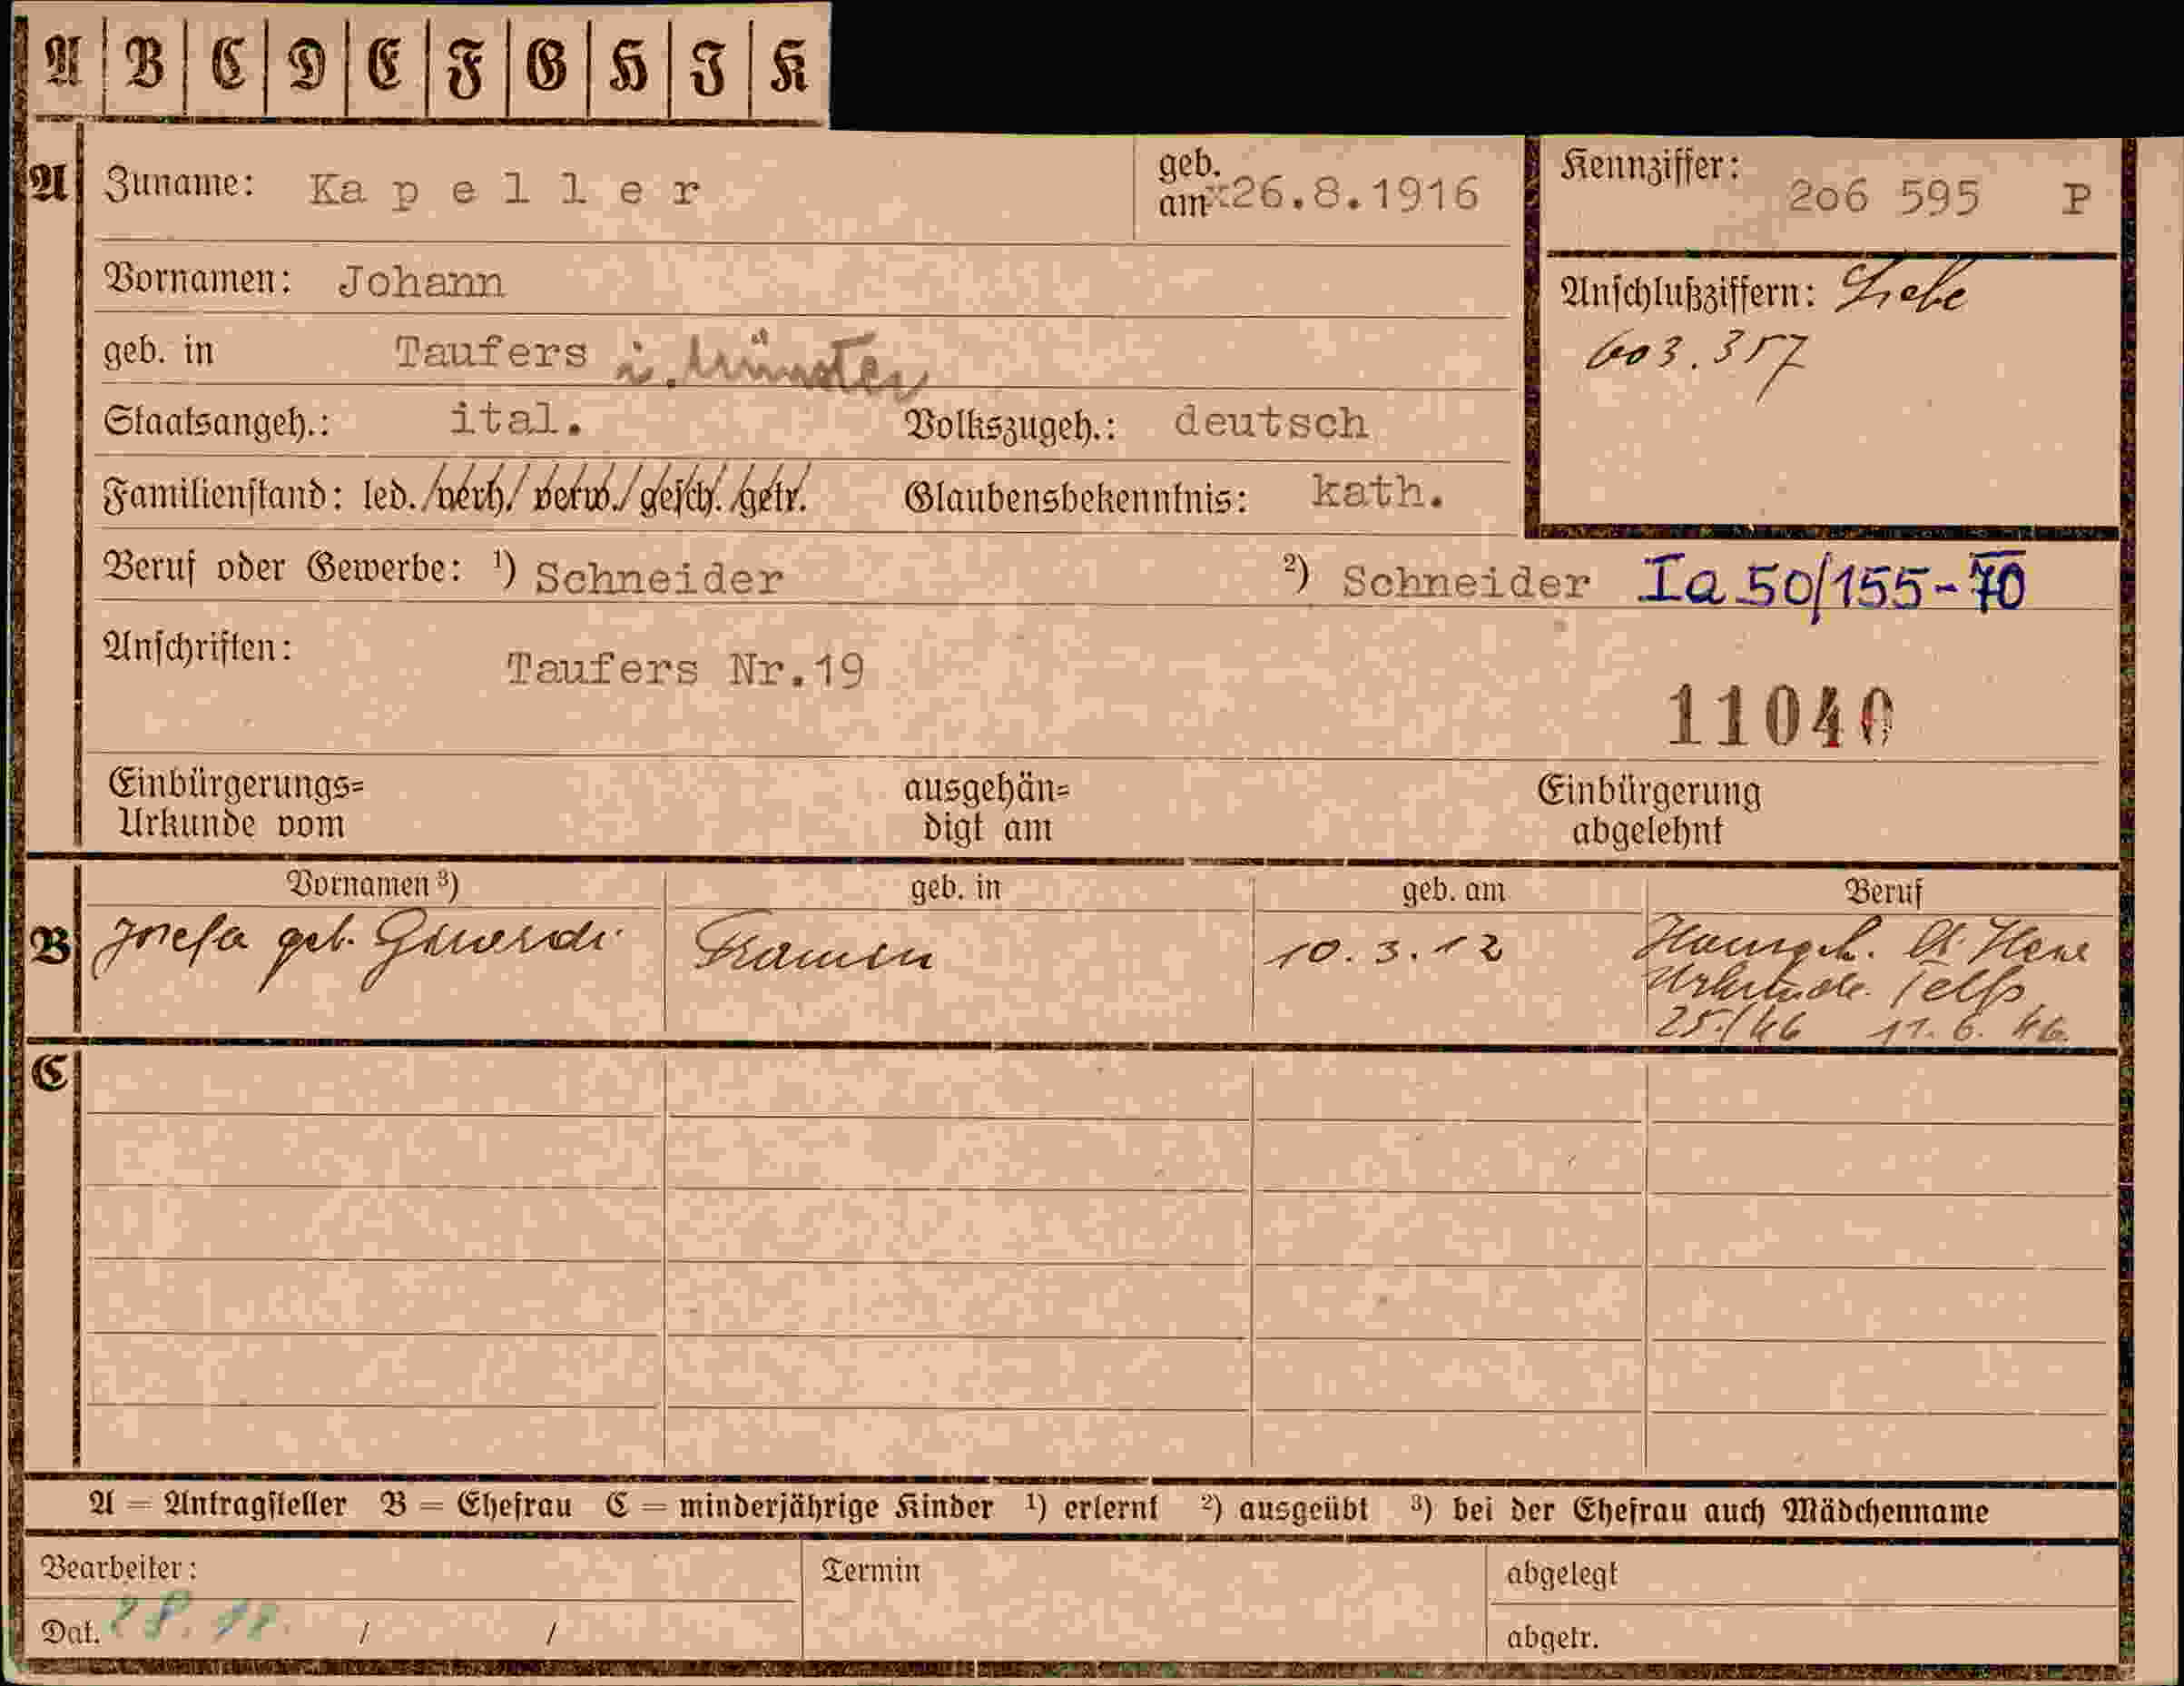 A B C D E F G H J K
A Zuname: Kapeller geb. am 26.8.1916 Kennziffer: 206 595 P
Vornamen: Johann Anschlußziffern: Siehe
603.357
geb. in Taufers i. Münster
Staatsangeh.: ital. Volkszugeh.: deutsch
Familienstand: led./verh./verw./gesch./getr. Glaubensbekenntnis: kath.
Beruf oder Gewerbe: ¹) Schneider ²) Schneider Ia 50/155-70
Anschriften: Taufers Nr.19
11040
Einbürgerungs= Urkunde vom ausgehän= digt am Einbürgerung abgelehnt
Vornamen ³) geb. in geb. am Beruf
B Josefa geb. Tramin 10.3.12
Urkunde Telfs
25./46 11.6.46.
C
A = Antragsteller B = Ehefrau C = minderjährige Kinder ¹) erlernt ²) ausgeübt ³) bei der Ehefrau auch Mädchenname
Bearbeiter: Termin abgelegt
Dat. / / abgetr.